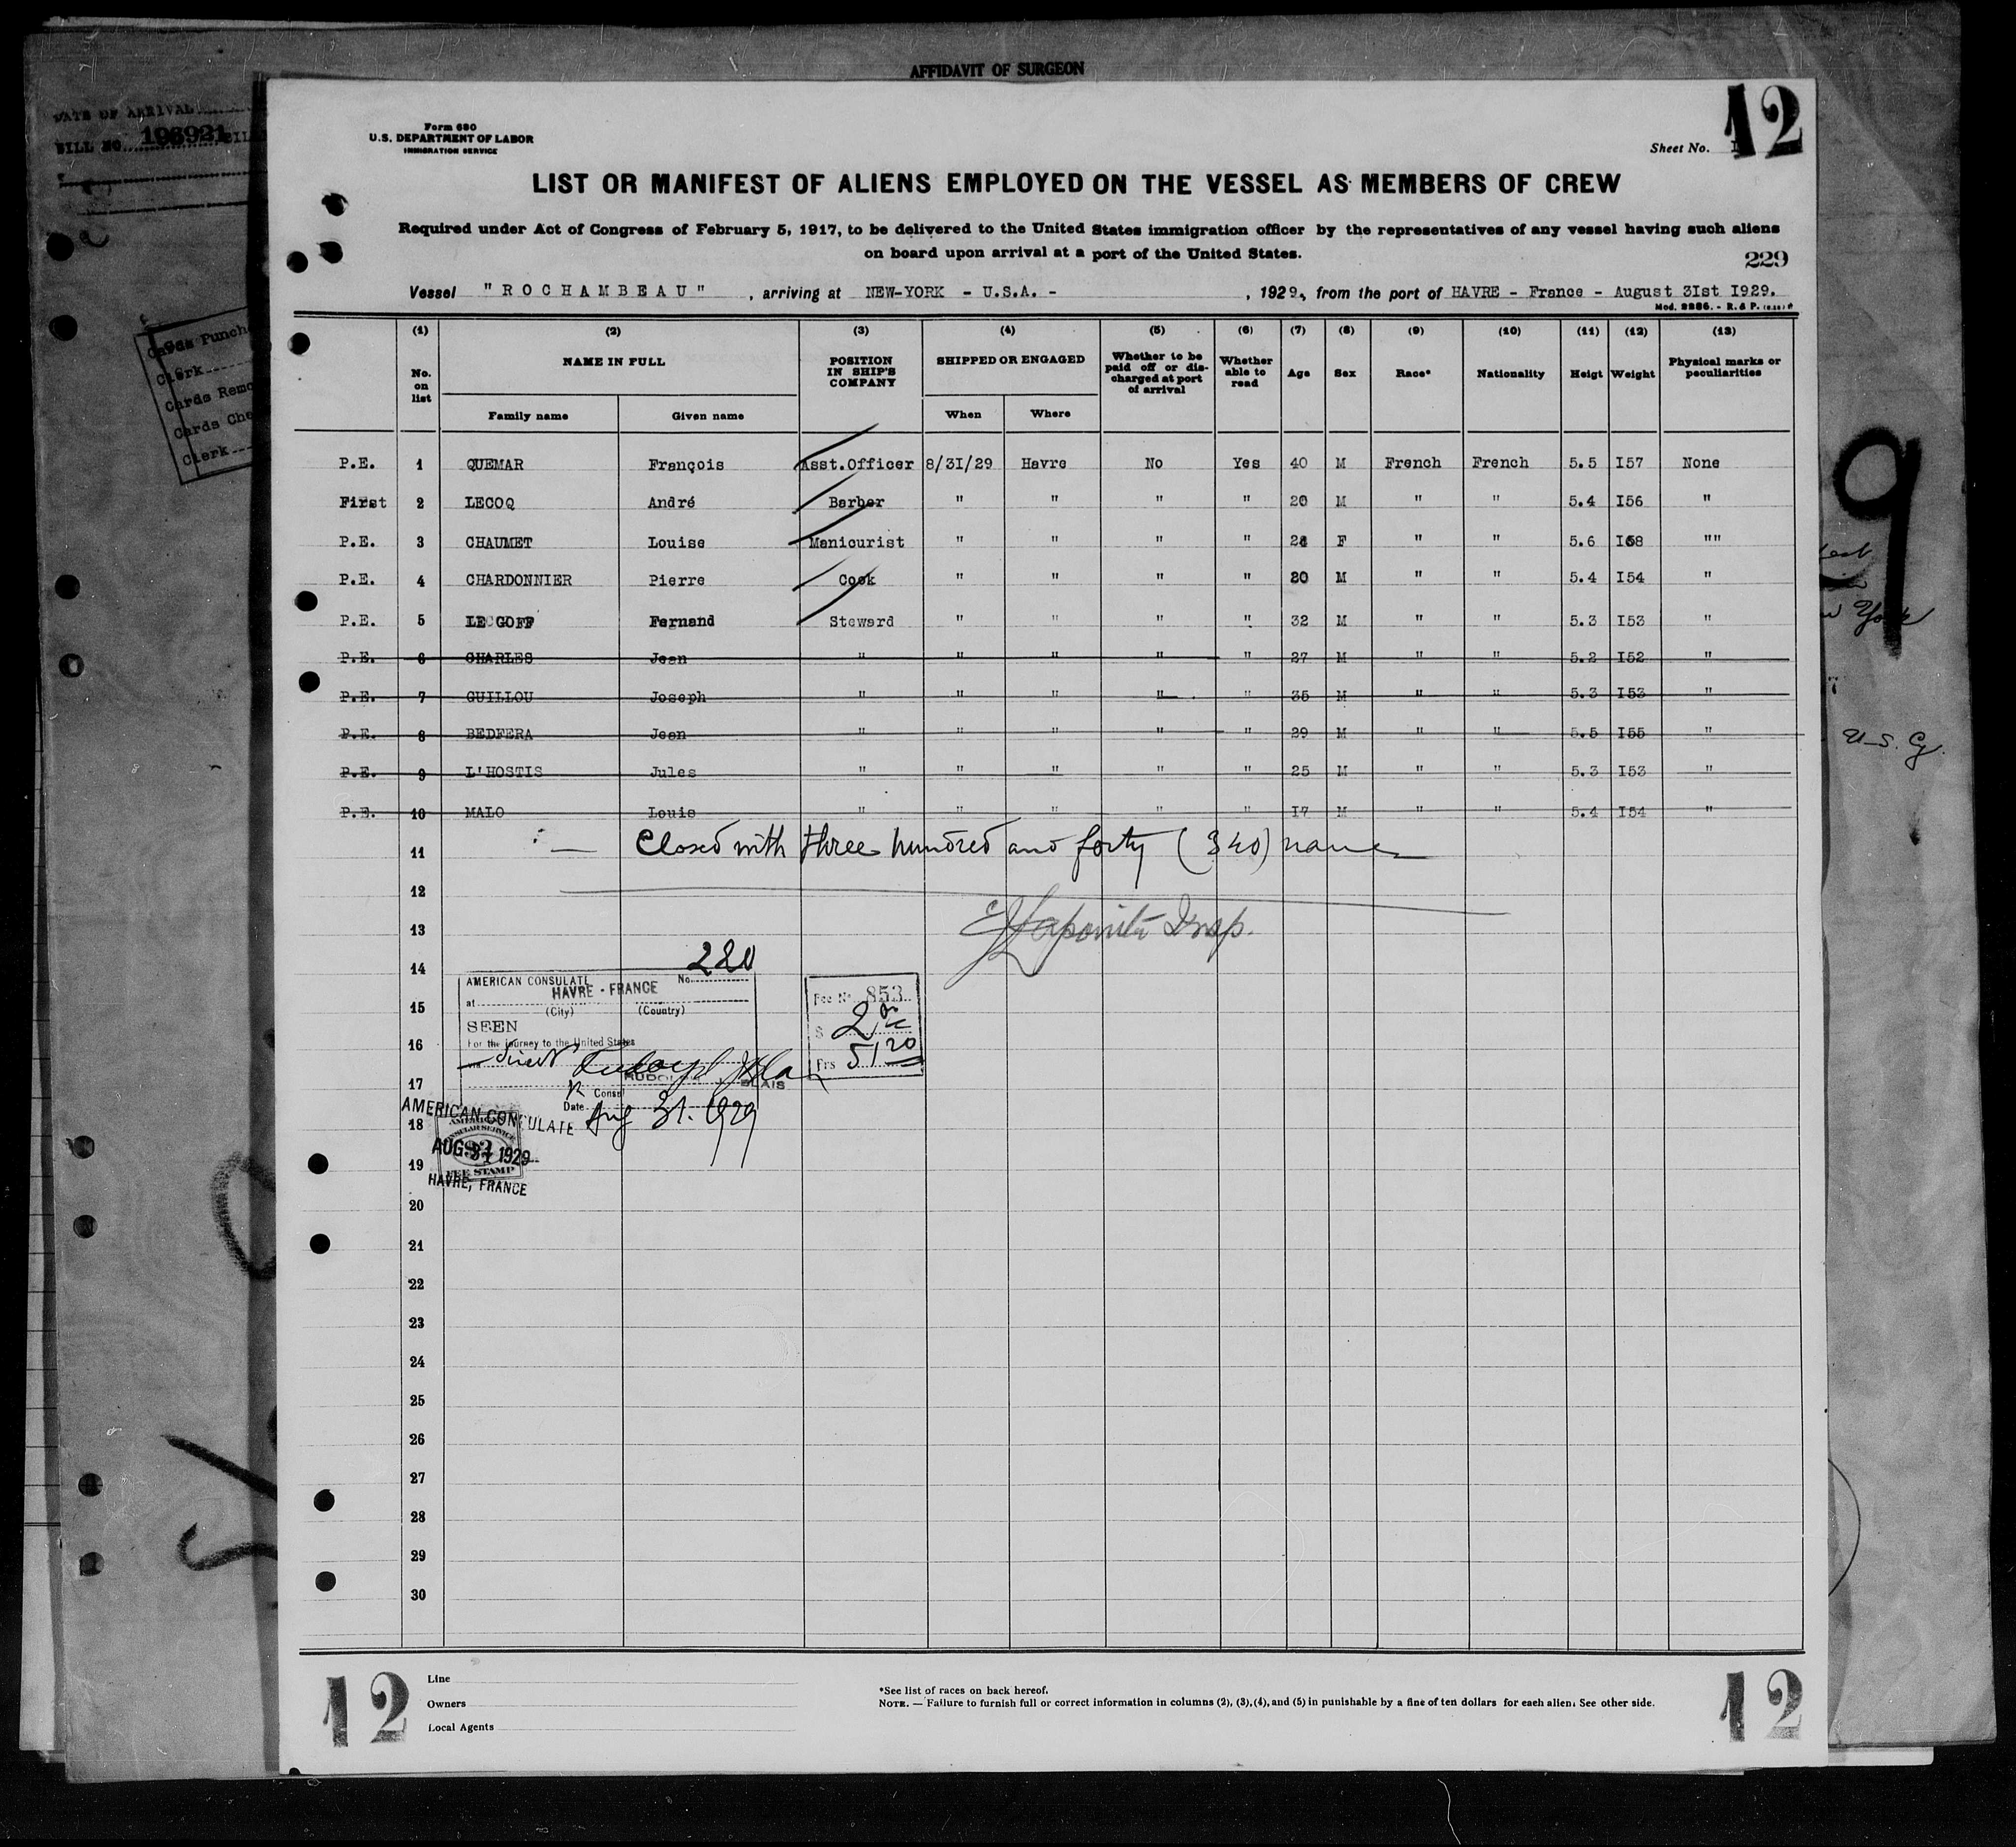 AFFIDAVIT OF SURGEON
DATE OF ARRIVAL
BILL NO. 108921
Cards Punch
Clerk
Cards Remo
Cards Che
Clerk
Form 680
U.S. DEPARTMENT OF LABOR
IMMIGRATION SERVICE
Sheet No. 12
LIST OR MANIFEST OF ALIENS EMPLOYED ON THE VESSEL AS MEMBERS OF CREW
Required under Act of Congress of February 5, 1917, to be delivered to the United States immigration officer by the representatives of any vessel having such aliens
on board upon arrival at a port of the United States.
229
Vessel "ROCHAMBEAU" , arriving at NEW-YORK - U.S.A. - , 1929, from the port of HAVRE - France - August 3Ist I929.
Mod. 2286. - R. & P.
(1) (2) (3) (4) (5) (6) (7) (8) (9) (10) (11) (12) (13)
No. on list NAME IN FULL POSITION IN SHIP'S COMPANY SHIPPED OR ENGAGED Whether to be paid off or discharged at port of arrival Whether able to read Age Sex Race* Nationality Heigt Weight Physical marks or peculiarities
Family name Given name When Where
P.E. 1 QUEMAR François Asst.Officer 8/3I/29 Havre No Yes 40 M French French 5.5 I57 None
First 2 LECOQ André Barber " " " " 20 M " " 5.4 I56 "
P.E. 3 CHAUMET Louise Manicurist " " " " F " " 5.6 ""
P.E. 4 CHARDONNIER Pierre Cook " " " " 20 M " " 5.4 I54 "
P.E. 5 LE GOFF Fernand Steward " " " " 32 M " " 5.3 I53 "
P.E. 6 CHARLES Jean " " " " " 27 M " " 5.2 I52 "
P.E. 7 GUILLOU Joseph " " " " " 35 M " " 5.3 I53 "
P.E. 8 BEDFERA Jean " " " " " 29 M " " 5.5 I55 "
P.E. 9 L'HOSTIS Jules " " " " " 25 M " " 5.3 I53 "
P.E. 10 MALO Louis " " " " " I7 M " " 5.4 I54 "
11 Closed with three hundred and forty (340) names
12
13 Insp.
14
15
16
17
18
19
20
21
22
23
24
25
26
27
28
29
30
AMERICAN CONSULATE No. 280
at HAVRE - FRANCE
(City) (Country)
SEEN
For the journey to the United States
direct
RUDOLPH BLAIS
Consul
Date Aug 31. 1929
Fee No. 853
$ 2.00
Frs 51.20
AMERICAN CONSULATE
AUG 31 1929
HAVRE, FRANCE
AMERICAN
CONSULAR SERVICE
$2
FEE STAMP
9
York
U.S. Cy.
12
Line
Owners
Local Agents
*See list of races on back hereof.
NOTE. — Failure to furnish full or correct information in columns (2), (3), (4), and (5) in punishable by a fine of ten dollars for each alien. See other side.
12